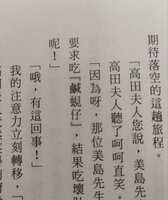 期待落空的這趟旅程。
「高田夫人您說，美島先
高田夫人聽了呵呵直笑。
「因為呀，那位美島先生
要求吃『鹹蜆仔』，結果吃壞肚
呢！」
「哦，有這回事！」
我的注意力立刻轉移，「